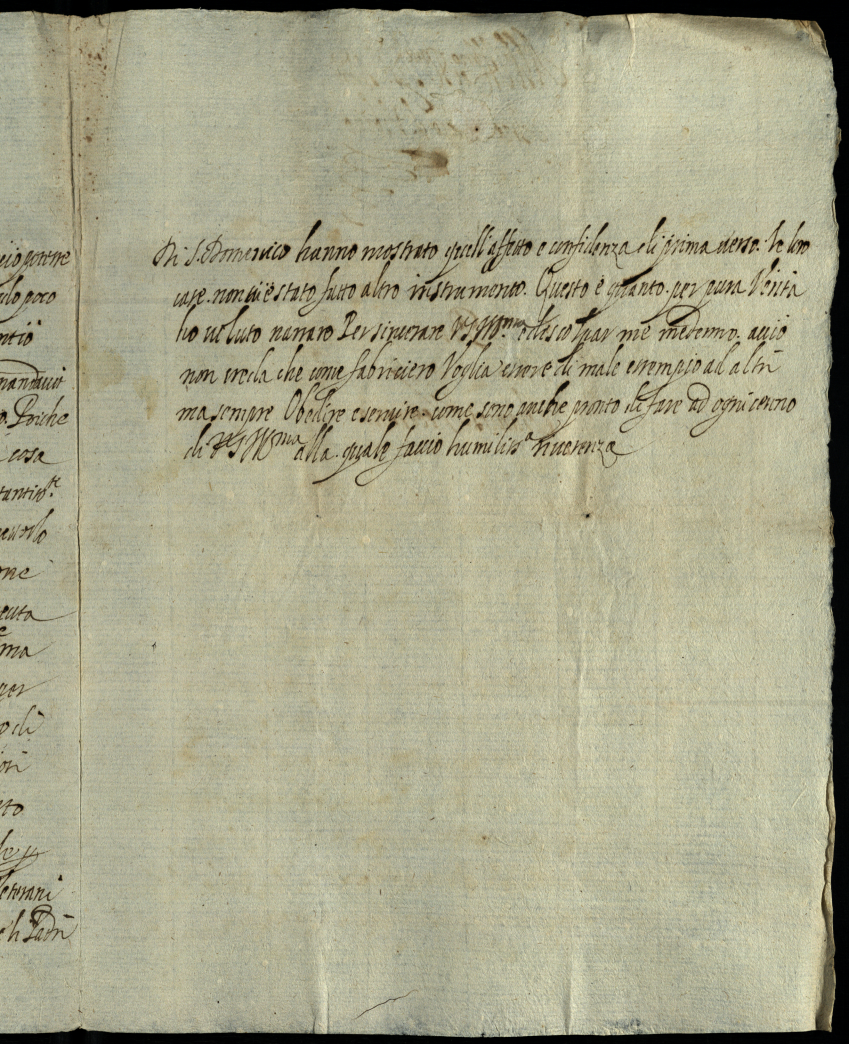 nandaui
Poiche
cosa
one
euta
ma
per
o di
ori
to
eterani
e li Padri
Di S. Domenico hanno mostrato quell'affetto e confidenza di prima verso le loro
case. non vi è stato fatto altro instrumento. Questo è quanto. per pura Verità
ho voluto narrare Per sincerare V.S. Ill.ma e discolpar me medemo. acciò
non creda che come fabriciero Voglia essere di male essempio ad altri
ma sempre Obedire e servire. come sono anche pronto di fare ad ogni cenno
di V.S. Ill.ma alla quale faccio humiliss.a riverenza